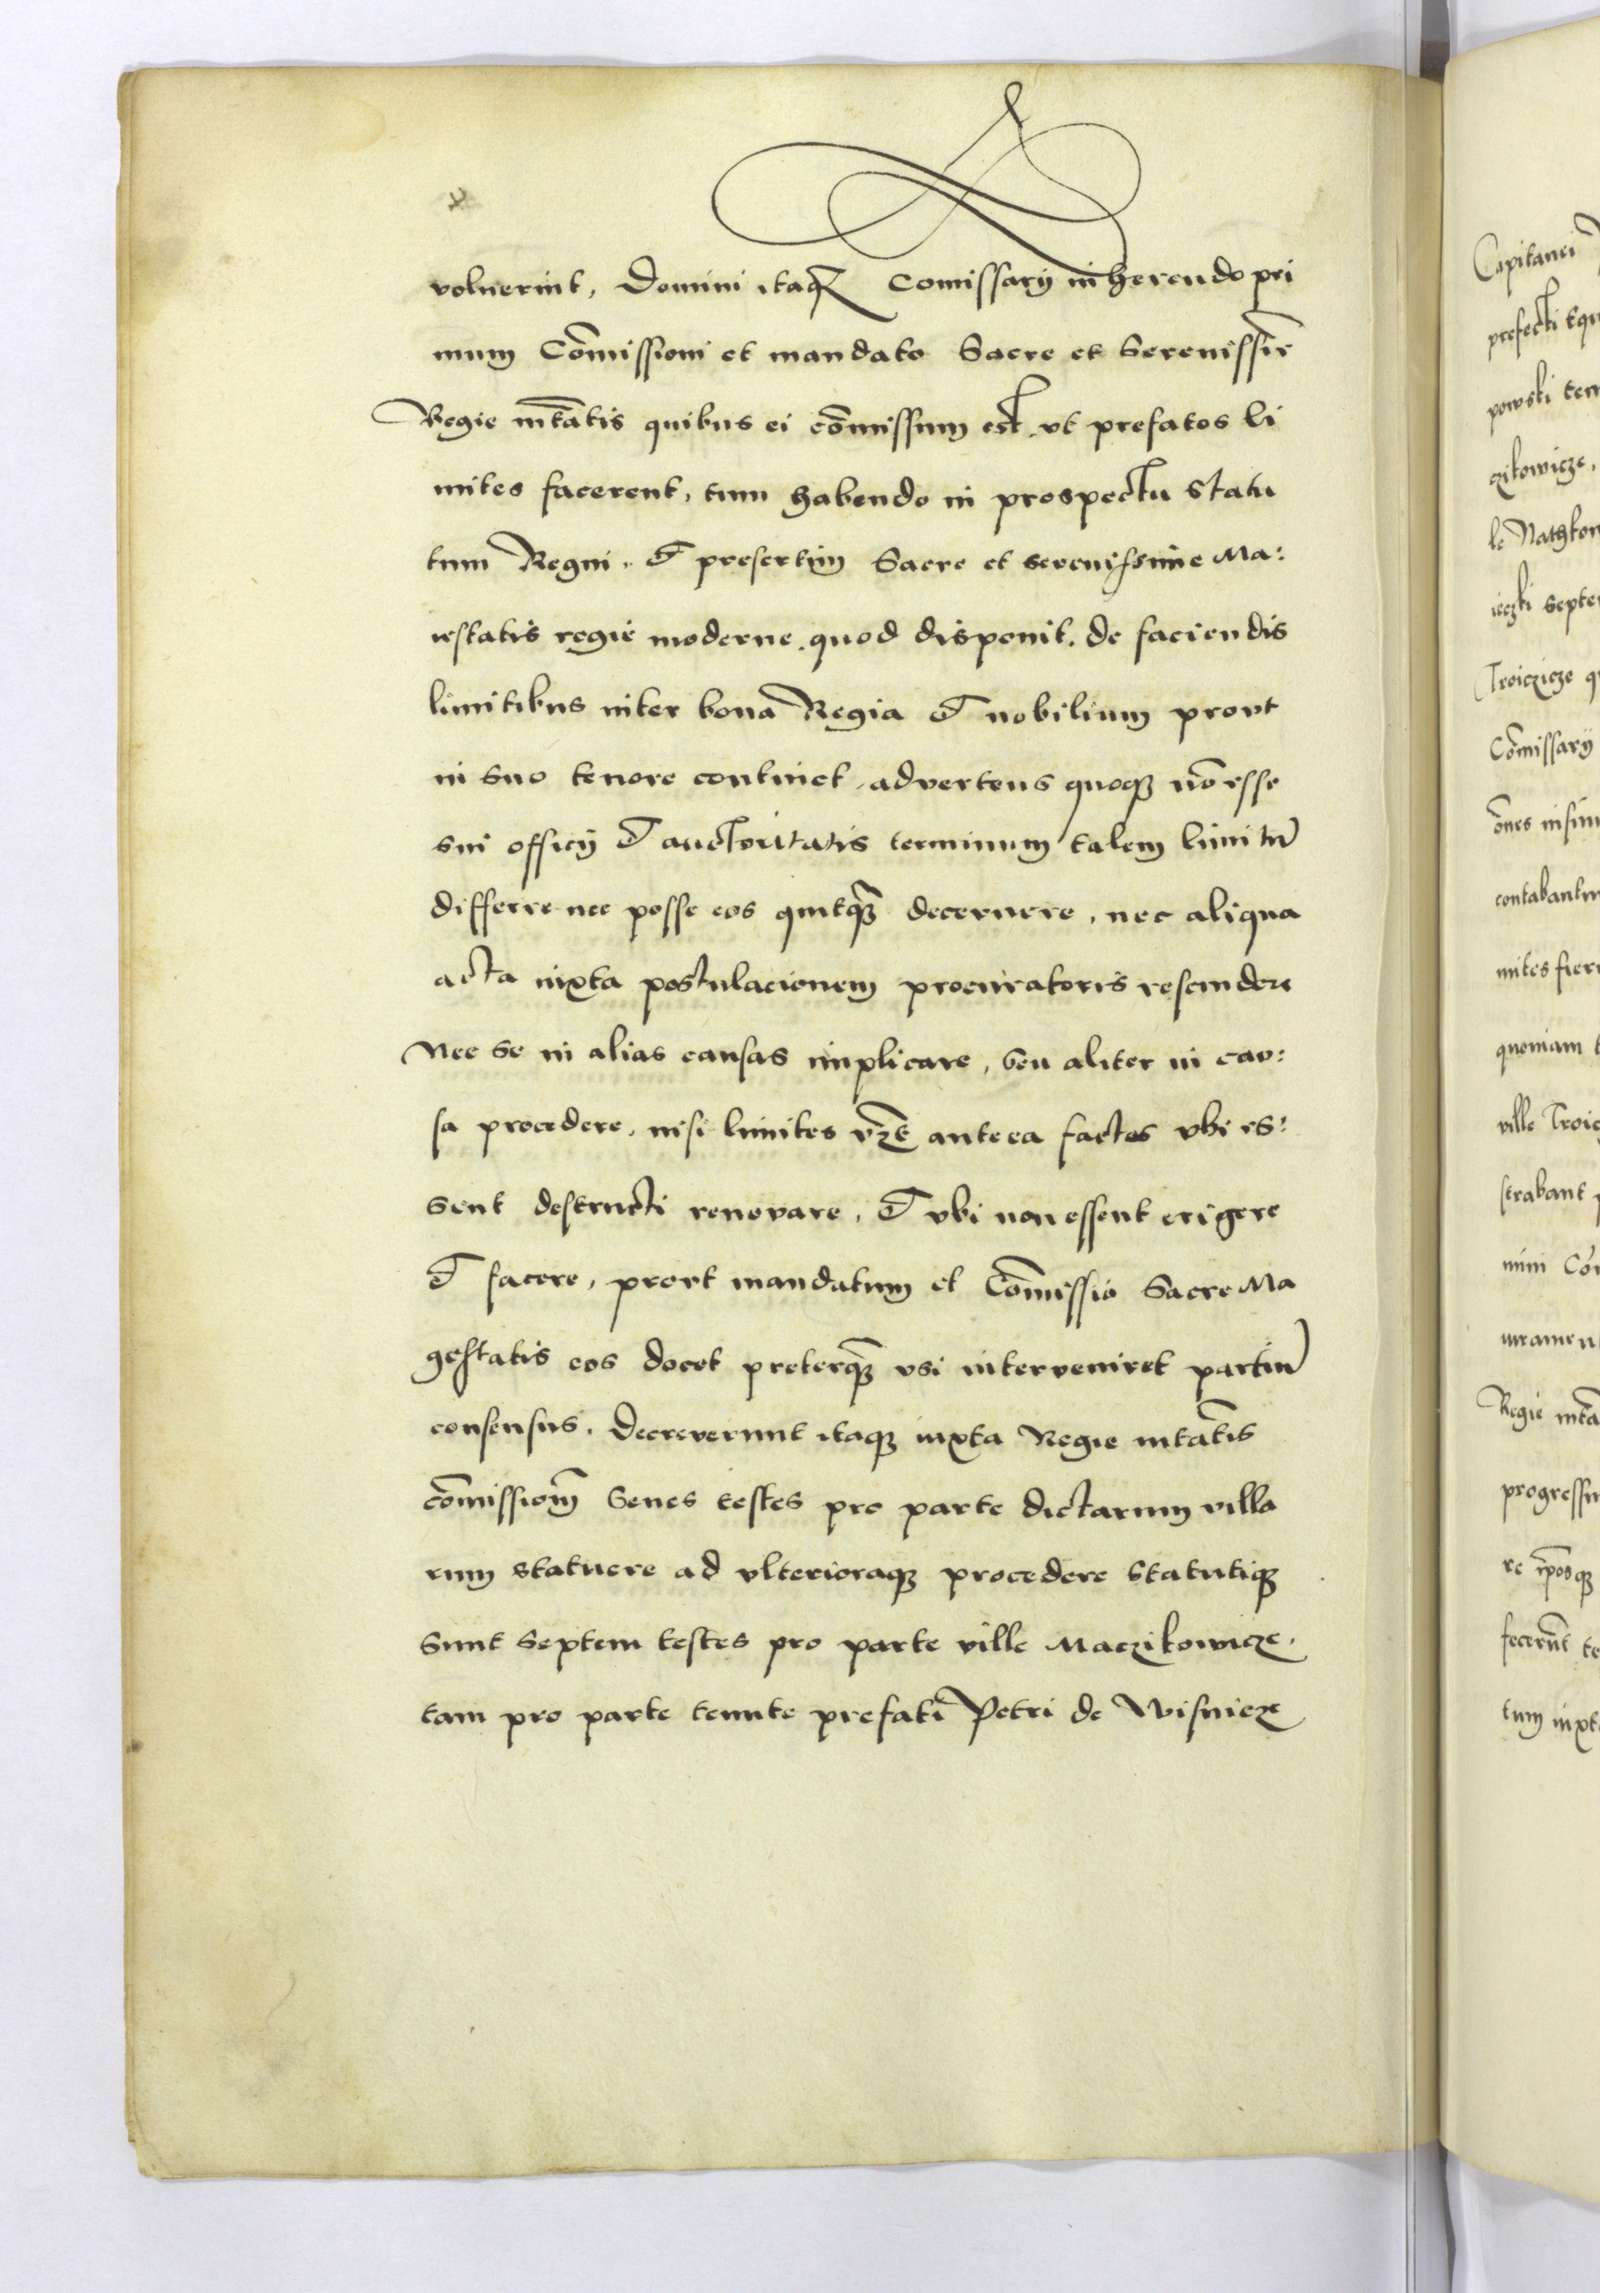 voluerint, Domini itaq Comissarÿ inherendo pri
mum Cōmissioni et mandato Sacre et Serenissīe
Regie mtātis quibus ei cōmissum est, vt prefatos li
mites facerent, tum habendo in prospectu statu
tum Regni, et presertim Sacre et serenissime Ma:
iestatis regie moderne, quod disponit, de faciendis
limitibus inter bona Regia et nobilium prout
in suo tenore continet, advertens quoq nō esse
sui officÿ et auctoritatis terminum talem limitū
differre nec posse eos quitq̄ decernere, nec aliqua
acta iuxta postulacionem procuratoris rescindere
Nec se in alias causas implicare, seu aliter in cau:
sa procedere, nisi limites vzt antea factos vbi es:
sent destructi renovare, et vbi non essent erigere
et facere, prout mandatum et Cōmissio Sacre Ma
gestatis eos docet preterq̄ vsi interveniret partiū
consensus, Decreverunt itaq iuxta Regie mtātis
cōmissiom̄ Senes testes pro parte dictarum villa
rum statuere ad vlterioraq procedere statutiq
sunt septem testes pro parte ville Maczikowicze,
tam pro parte tenute prefati Petri de Wisnicze
Capitanei
prefecti equ
powski ten
czikowicze,
le Nathkow
ieczki septe
Troiczicze q
Cōmissarÿ
ōnes insim
contabantur
mites fier
quoniam t
ville Troic
strabant p
mini Cō
iuramen
Regie mtā
progressu
re ip̄osq
fecerūt te
tum iuxt